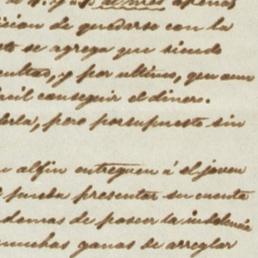 al mes apenas
sicion de quedarse con la
esto se agrega que siendo
cultad, y por ultimo, que aun
cil conseguir el dinero.
darla, pero por supuesto sin
al fin entreguen á el joven
pueba presentar su cuenta
demas de poseer la indolencia
muchas ganas de arreglar